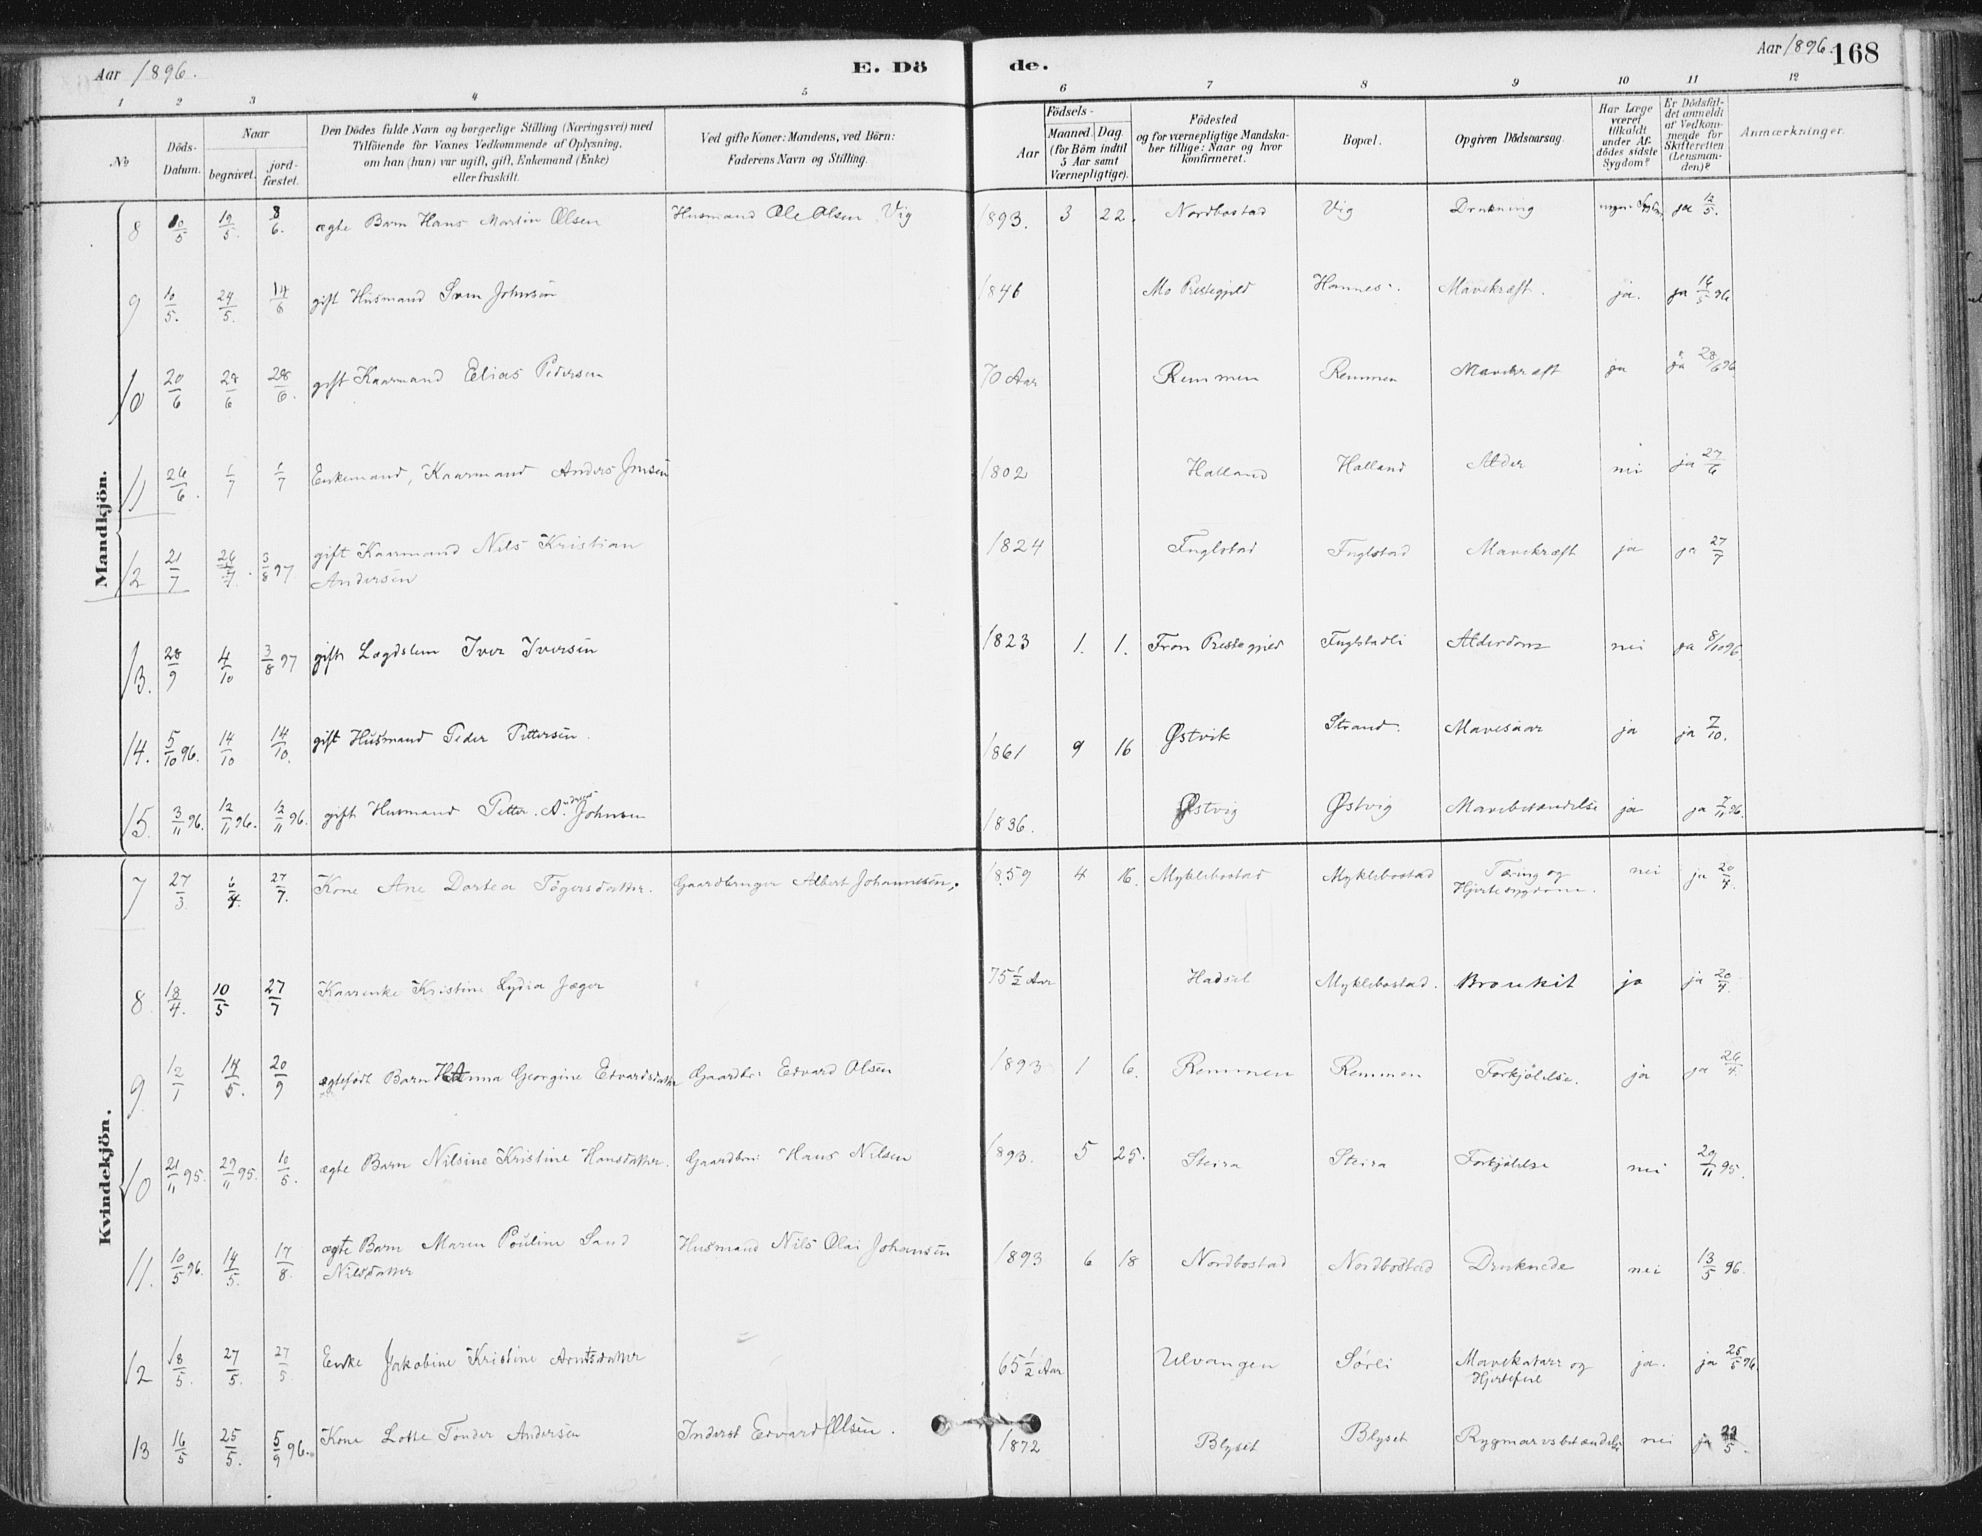 Aar 1896. E. Dö de. Aar 1896. 168
1 2 3 4 5 6 7 8 9 10 11 12
No
Döds-Datum.
Naar begravet. jordfæstet.
Den Dödes fulde Navn og borgerlige Stilling (Næringsvei) med
Tilföiende for Voxnes Vedkommende af Oplysning,
om han (hun) var ugift, gift, Enkemand (Enke)
eller fraskilt.
Ved gifte Koner: Mandens, ved Börn:
Faderens Navn og Stilling.
Födsels-
Aar Maaned Dag
(for Börn indtil
5 Aar samt
Værnepligtige).
Födested
og for værnepligtige Mandska-
ber tillige: Naar og hvor
konfirmeret.
Bopæl.
Opgiven Dödsaarsag.
Har Læge
været
tilkaldt
under Af-
dödes sidste
Sygdom?
Er Dödsfal-
det anmeldt
af Vedkom-
mende for
Skifteretten
(Lensman-
den)?
Anmærkninger.
Mandkjön.
8 10/5 19/5. 8/6. ægte Barn Hans Martin Olsen Husmand Ole Olsen Vig 1893. 3 22. Nordbostad Vig Drukning ingen ja 12/5.
9 10/5. 24/5. 14/6 gift Husmand Sven Johnsen 1846 Mo Prestegjeld Hannes. Mavekræft. ja. ja 16/5 96
10 20/6 28/6 28/6. gift Kaarmand Elias Pedersen 70 Aar Remmen Remmen Mavekræft ja ja 28/6 96.
11 26/6. 1/7 1/7 Enkemand, Kaarmand Anders Jensen 1802 Halland Halland Alder nei ja 27/6
12 21/7 26/7. 3/8 97 gift Kaarmand Nils Kristian
Andersen 1824 Fuglstad Fuglstad Mavekræft ja ja 27/7
13. 28/9 4/10 3/8 97 gift Lægdslem Iver Iversen 1823 1. 1. Fron Prestegjeld Fuglstadli Alderdom nei ja 8/10 96.
14. 5/10 96. 14/10 14/10. gift Husmand Peder Pettersen. 1861 9 16 Østvik Strand. Mavesaar ja ja 7/10.
15. 3/11 96. 12/11 96. 12/11 96. gift Husmand Petter. A. Johnsen 1836. Østvig Østvig Mavebetændelse ja ja 7/11 96.
Kvindekjön.
7 27/3 6/4 27/7. Kone Ane Dortea Tögersdatter. Gaardbruger Albert Johannesen. 1859 4 16. Myklebostad Myklebostad Tæring og
Hjertesygdom. nei ja 20/4.
8 18/4. 10/5 27/7 Kaarenke Kristine Lydia Jæger 75 1/2 Aar Hadsel Myklebostad. Bronkit ja ja 20/4.
9 12/1 14/5. 20/9 ægtefödt Barn Hanna Georgine Edvardsdatter Gaardbr. Edvard Olsen 1893 1 6. Remmen Remmen Forkjölelse. ja ja 26/4
10 21/11 95. 29/11 95. 10/5. ægte Barn Nilsine Kristine Hansdatter. Gaardbr. Hans Nilsen 1893. 5 25. Steira Steira Forkjölelse nei 29/11 95.
11. 10/5 96. 14/5. 17/8. ægte Barn Maren Pouline Sand
Nilsdatter Husmand Nils Olai Johansen 1893 6 18 Nordbostad Nordbostad Druknede nei 13/5 96.
12 18/5. 27/5. 27/5 Enke Jakobine Kristine Arntsdatter 65 1/2 Aar Ulvangen Sörli Mavekatarr og
Hjertefeil ja. ja 25/5 96.
13 16/5 25/5. 5/9 96. Kone Lotte Tönder Andersen Inderst Edvard Olsen. 1872 Blyset Blyset Rygmarvsbetændelse nei ja 22/5.